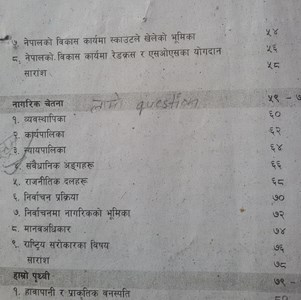 ७. नेपालको विकास कार्यमा स्काउटले खेलेको भूमिका ५४
८. नेपालको विकास कार्यमा रेडक्रस र एसओएसका योगदान ५६
सारांश ५८
नागरिक चेतना question ५९ -
१. व्यवस्थापिका ६०
२. कार्यपालिका ६२
३. न्यायपालिका ६४
४. संवैधानिक अङ्गहरू ६६
५. राजनीतिक दलहरू ६८
६. निर्वाचन प्रक्रिया ७०
७. निर्वाचनमा नागरिकको भूमिका ७२
८. मानवअधिकार ७४
९. राष्ट्रिय सरोकारका विषय ७६
सारांश ७८
हाम्रो पृथ्वी ७९ -
१. हावापानी र प्राकृतिक वनस्पति ८०